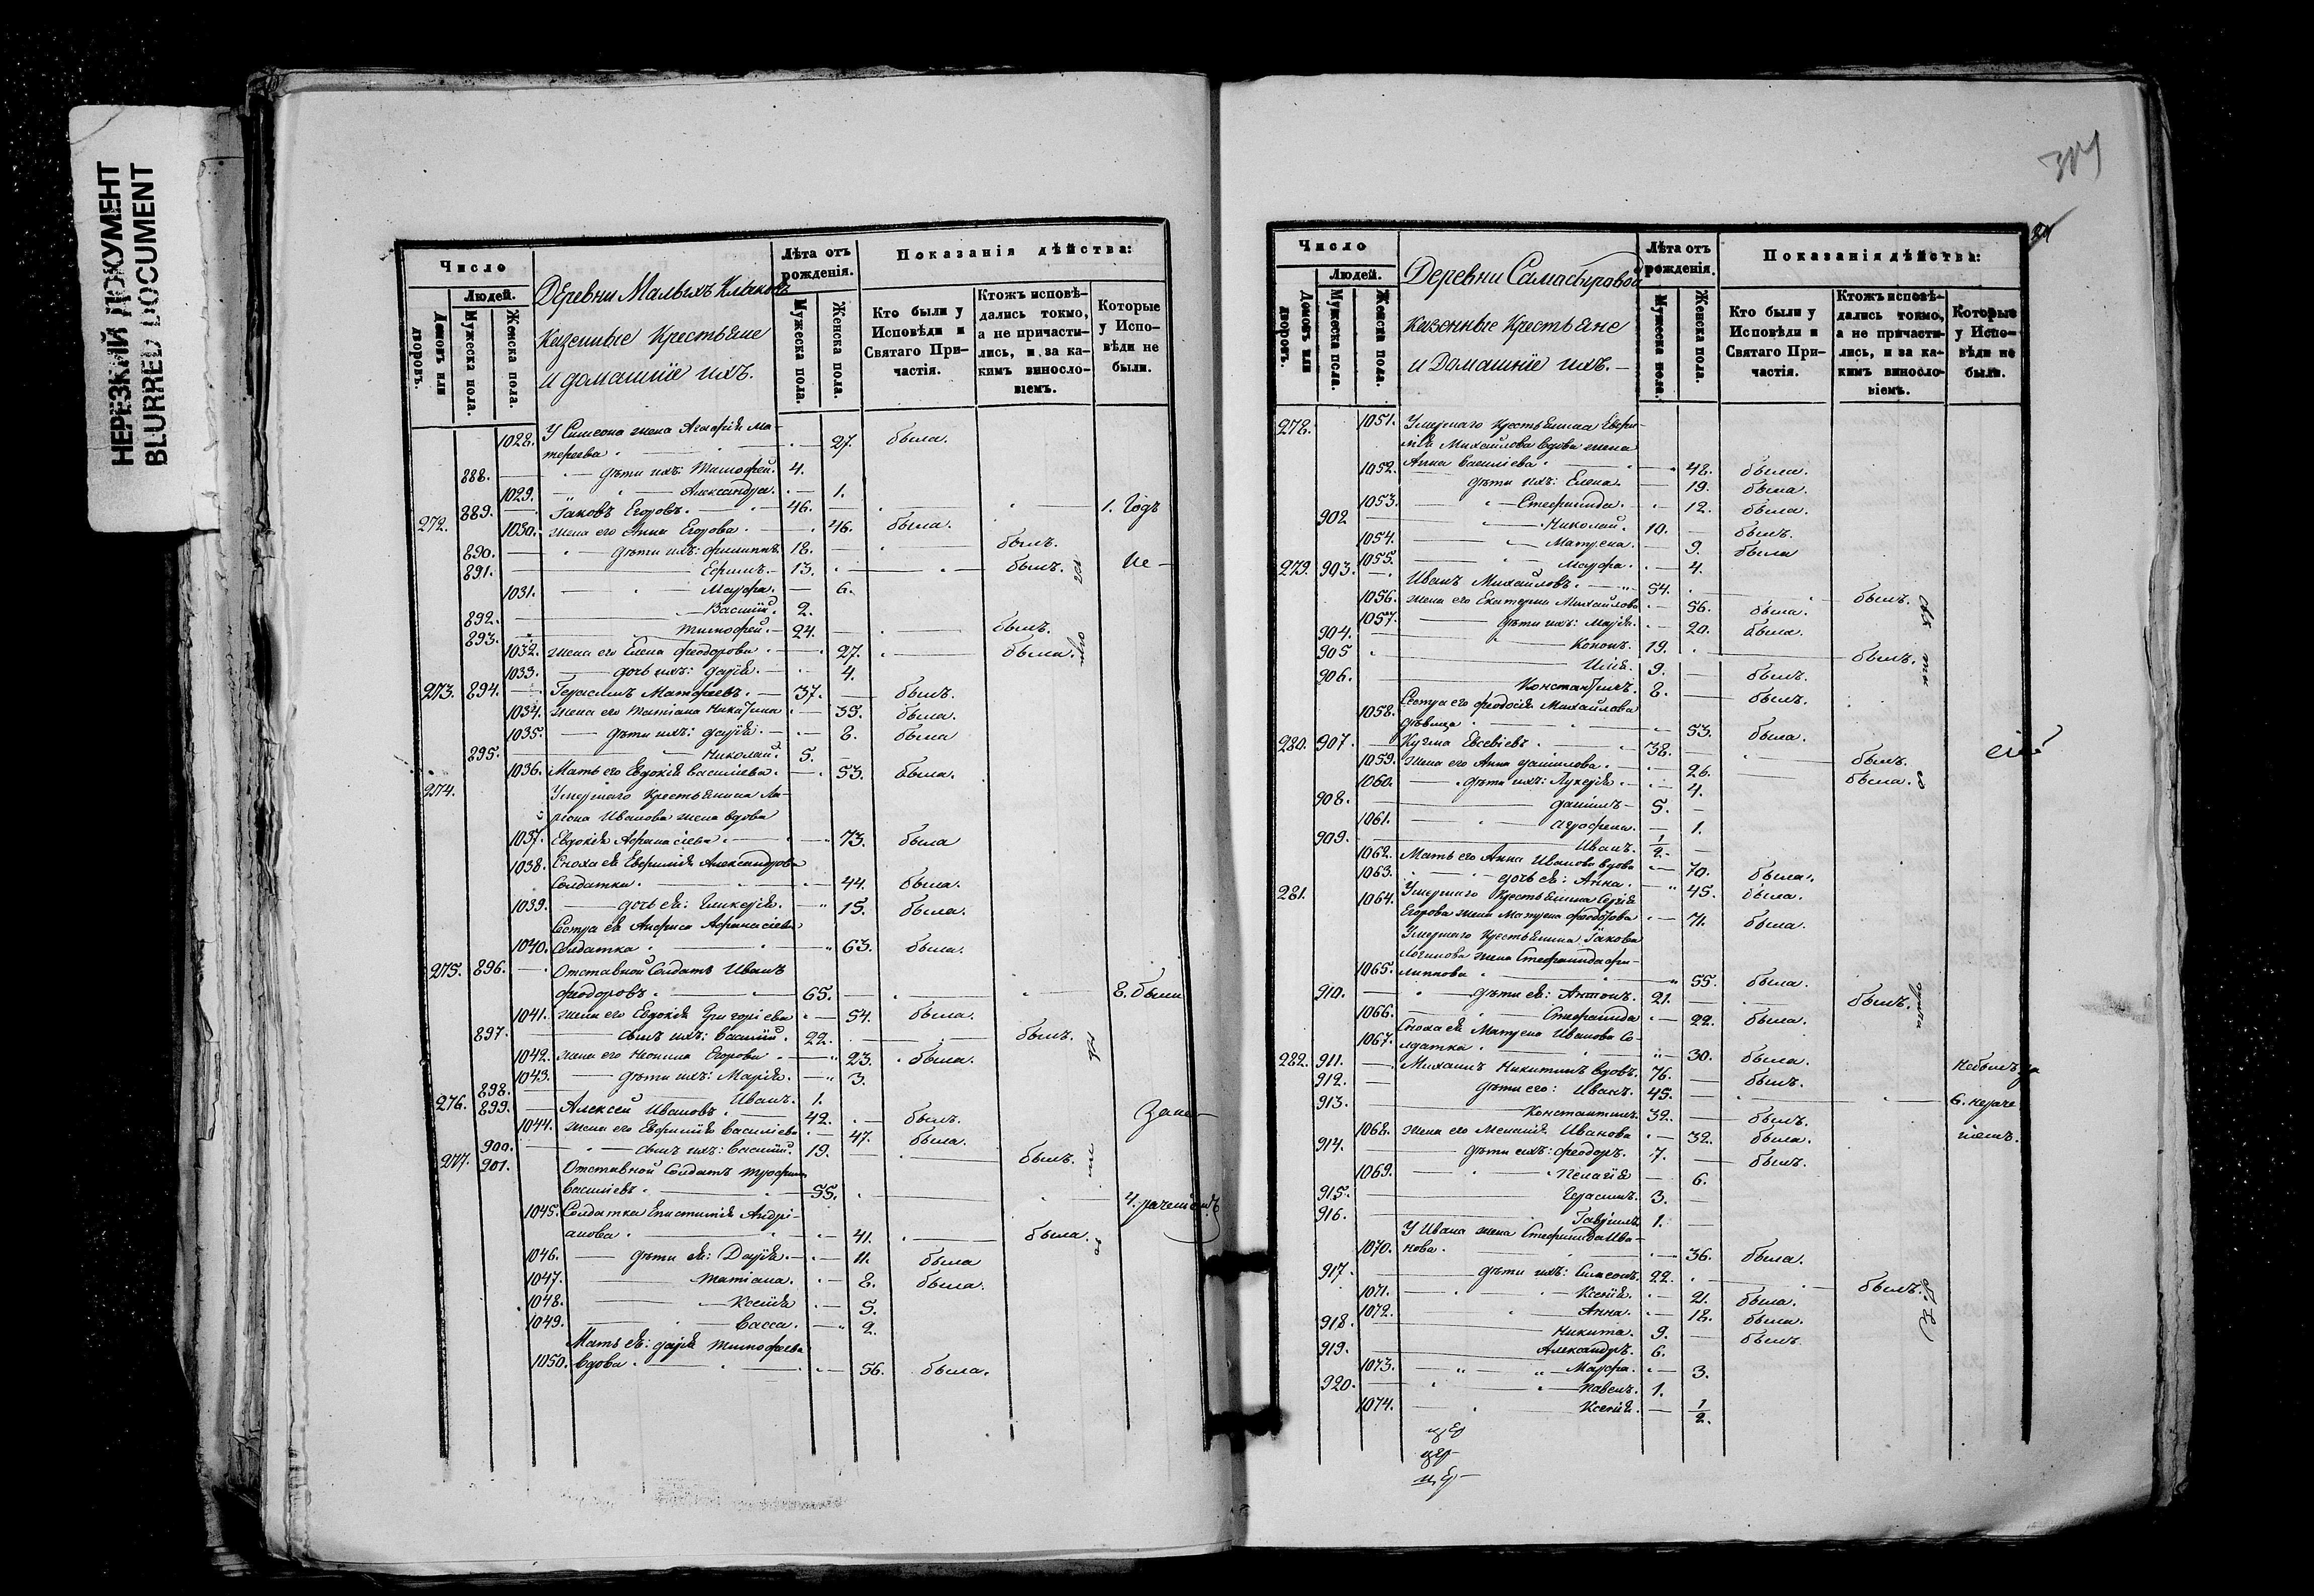 НЕРЕЗКИЙ ДОКУМЕНТ
BLURRED DOCUMENT
Число
Людей.
Домовъ или дворовъ.
Мужеска пола.
Женска пола.
Деревни Малыхъ
Казенные Крестьяне
и домашніе ихъ.
Лѣта отъ рожденія.
Мужеска пола.
Женска пола.
Показанія дѣйства:
Кто были у Исповѣди и Святаго Причастія.
Ктожъ исповѣдались токмо, а не причастились, и за какимъ винословіемъ.
Которые у Исповѣди не были.
1028. У Симеона жена Агафія Ма-
тереева 27. была.
888. дѣти ихъ: Тимофей. 4.
1029. Александра. 1.
272. 889. Іаковъ Егоровъ. 46. 1. Годъ
1030. жена его Анна Егорова. 46. была.
890. дѣти ихъ: Филиппъ 18. былъ.
891. Ефимъ. 13. былъ. Не
1031. Марфа. 6.
892. Василій. 2.
893. Тимофей. 24. былъ.
1032. жена его Елена Феодорова. 27. была.
1033. дочь ихъ: Дарія. 4.
273. 894. Герасимъ Матфеевъ. 37. былъ.
1034. жена его Татіана Никитина 35. была.
1035. дѣти ихъ: Дарія. 8. была
895. Николай. 5.
1036. Мать его Евдокія Василіева. 53. была.
274. Умершаго Крестьянина Ла-
ріона Иванова жена вдова
1037. Евдокія Афанасіева. 73. была
1038. Сноха ея Евфимія Александрова
Солдатка. 44. была.
1039. дочь ея: Гликерія. 15. была.
Сестра ея Анфиса Афанасіева
1040. Солдатка. 63. была.
275. 896. Отставной Солдатъ Иванъ
Феодоровъ. 65. 8. были
1041. жена его Евдокія Григоріева 54. была.
897. сынъ ихъ: Василій. 22. былъ.
1042. жена его Неонила Егорова 23. была.
1043. дѣти ихъ: Марія. 3.
898. Иванъ. 1.
276. 899. Алексей Ивановъ. 42. былъ. Зане
1044. жена его Евфимія Василіева 47. была.
900. сынъ ихъ: Василій. 19. былъ.
277. 901. Отставной Солдатъ Трофимъ
Василіевъ. 55. 4.
1045. Солдатка Епистимія Андрі-
анова 41. была.
1046. дѣти ея: Дарія. 11. была
1047. Татіана. 8. была.
1048. Ксенія 5.
1049. Васса. 2.
Мать ея: Дарія Тимофеева
1050. вдова. 56. была.
Число
Людей.
Домовъ или дворовъ.
Мужеска пола.
Женска пола.
Деревни Самосыровой
Казенные Крестьяне
и Домашніе ихъ.
Лѣта отъ рожденія.
Мужеска пола.
Женска пола.
Показанія дѣйства:
Кто были у Исповѣди и Святаго Причастія.
Ктожъ исповѣдались токмо, а не причастились, и за какимъ винословіемъ.
Которые у Исповѣди не были.
278. 1051. Умершаго Крестьянина Евфи-
мія Михайлова вдова жена
Анна Василіева. 48. была.
1052. дѣти ихъ: Елена. 19. была.
1053. Стефанида. 12. была.
902 Николай. 10. былъ.
1054. Матрена. 9. была
1055. Марфа. 4.
279. 903. Иванъ Михайловъ. 54. былъ.
1056. жена его Екатерина Михайлова 56. была.
1057. дѣти ихъ: Марія. 20. была.
904. Кононъ. 19. былъ.
905 Илія. 9. былъ.
906. Константинъ. 8. былъ.
1058. Сестра его Феодосія Михайлова
дѣвица 53. была.
280. 907. Кузма Евсевіевъ. 38. былъ.
1059. жена его Анна Данилова. 26. была.
1060. дѣти ихъ: Лукерія. 4.
908. Даніилъ 5.
1061. Агрофена. 1.
909. Иванъ. 1/2.
1062. Мать его Анна Иванова вдова 70. была.
1063. дочь ея: Анна. 45. была.
281. 1064. Умершаго Крестьянина Сергія
Егорова жена Матрена Феодорова 71. была.
Умершаго Крестьянина Іакова
Логинова жена Стефанида Фи-
1065. липпова 55. была.
910. дѣти ея: Антонъ. 21. былъ.
1066. Стефанида 22. была.
1067. Сноха ея Матрена Иванова Со-
лдатка 30. была.
282. 911. Михаилъ Никитинъ вдовъ. 76. былъ. Небылъ за
912. дѣти его: Иванъ. 45. 6. нераче
913. Константинъ. 32. былъ. ніемъ.
1068. жена его Меланія Иванова 32. была.
914. дѣти ихъ: Феодоръ. 7. былъ.
1069. Пелагія 6.
915. Герасимъ. 3.
916. Гавріилъ 1.
У Ивана жена Стефанида Ива-
1070. нова. 36. была.
917. дѣти ихъ: Симеонъ. 22. былъ.
1071. Ксенія. 21. была.
1072. Анна. 18. была.
918. Никита. 9. былъ
919. Александръ. 6.
1073. Марфа. 3.
920. Павелъ. 1.
1074. Ксенія. 1/2.